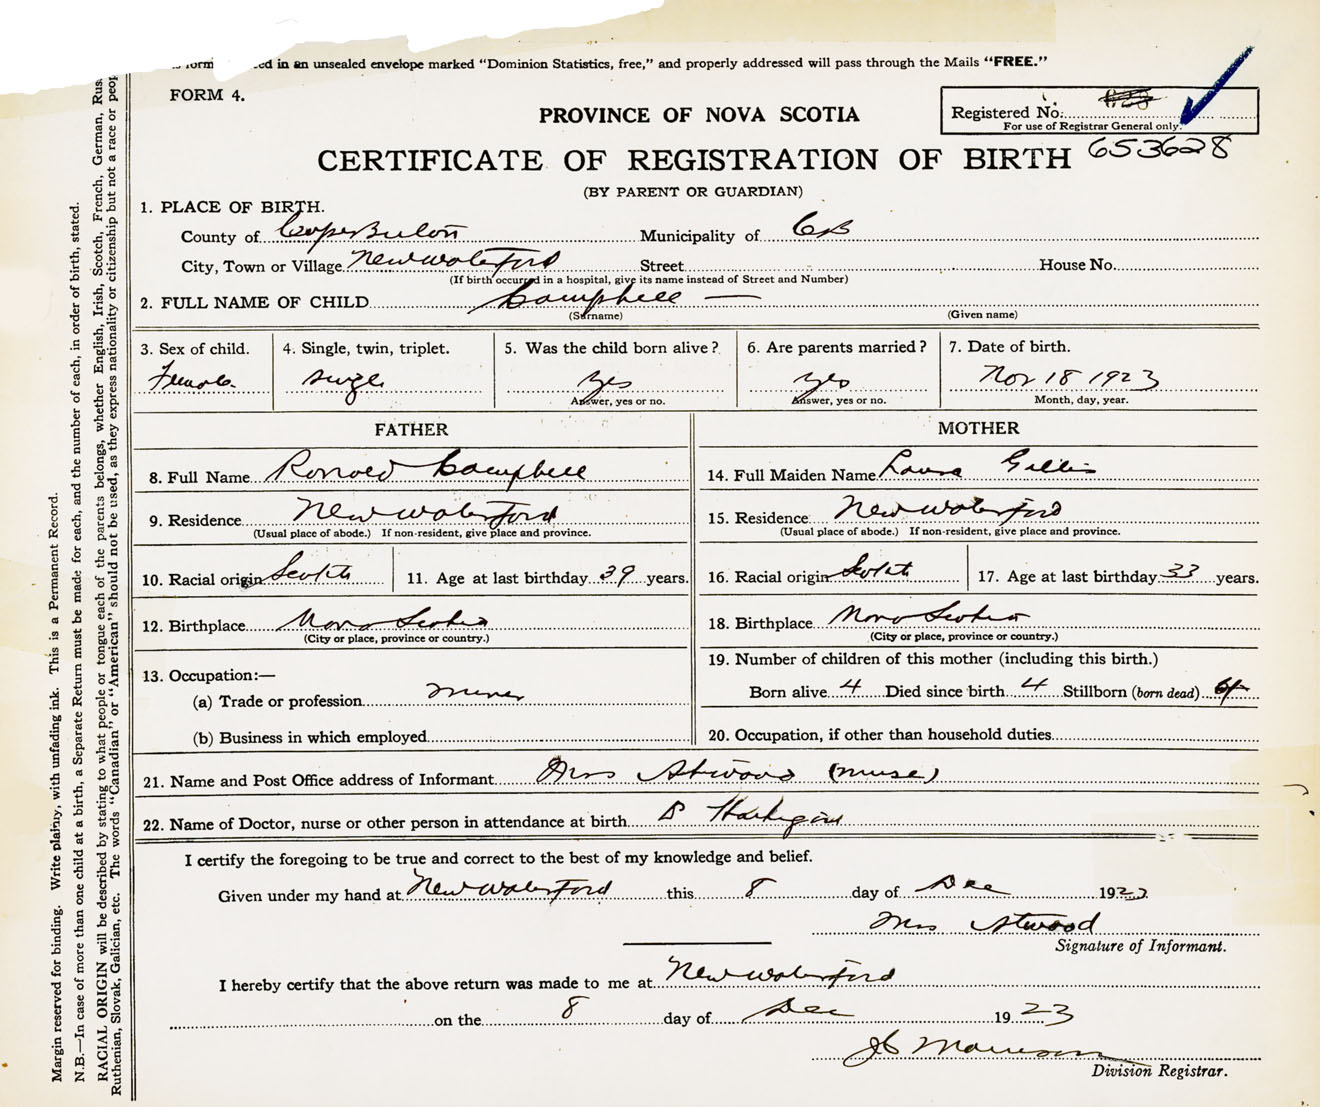 is form ed in an unsealed envelope marked "Dominion Statistics, free," and properly addressed will pass through the Mails "FREE."
FORM 4.
PROVINCE OF NOVA SCOTIA
Registered No.
For use of Registrar General only.
653628
CERTIFICATE OF REGISTRATION OF BIRTH
(BY PARENT OR GUARDIAN)
1. PLACE OF BIRTH.
County of Cape Breton Municipality of CB
City, Town or Village New Waterford Street House No.
(If birth occurred in a hospital, give its name instead of Street and Number)
2. FULL NAME OF CHILD Campbell —
(Surname) (Given name)
3. Sex of child. 4. Single, twin, triplet. 5. Was the child born alive? 6. Are parents married? 7. Date of birth.
Female single yes yes Nov 18 1923
Answer, yes or no. Answer, yes or no. Month, day, year.
FATHER MOTHER
8. Full Name Ronald Campbell 14. Full Maiden Name Laura Gillis
9. Residence New Waterford 15. Residence New Waterford
(Usual place of abode.) If non-resident, give place and province. (Usual place of abode.) If non-resident, give place and province.
10. Racial origin Scotch 11. Age at last birthday 39 years. 16. Racial origin Scotch 17. Age at last birthday 33 years.
12. Birthplace Nova Scotia 18. Birthplace Nova Scotia
(City or place, province or country.) (City or place, province or country.)
13. Occupation:— 19. Number of children of this mother (including this birth.)
(a) Trade or profession miner Born alive 4 Died since birth 4 Stillborn (born dead)
(b) Business in which employed 20. Occupation, if other than household duties
21. Name and Post Office address of Informant Mrs Atwood (nurse)
22. Name of Doctor, nurse or other person in attendance at birth D
I certify the foregoing to be true and correct to the best of my knowledge and belief.
Given under my hand at New Waterford this 8 day of Dec 1923
Mrs Atwood
Signature of Informant.
I hereby certify that the above return was made to me at New Waterford
on the 8 day of Dec 1923
JC Morrison
Division Registrar.
Margin reserved for binding. Write plainly, with unfading ink. This is a Permanent Record.
N.B.—In case of more than one child at a birth, a Separate Return must be made for each, and the number of each, in order of birth, stated.
RACIAL ORIGIN will be described by stating to what people or tongue each of the parents belongs, whether English, Irish, Scotch, French, German, Rus
Ruthenian, Slovak, Galician, etc. The words "Canadian" or "American" should not be used, as they express nationality or citizenship but not a race or peop